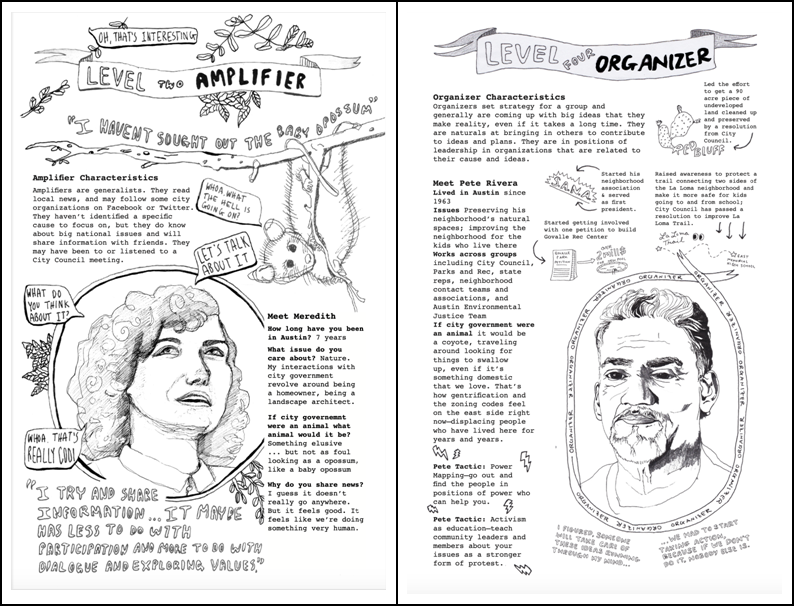 OH, THAT'S INTERESTING
LEVEL TWO AMPLIFIER
"I HAVEN'T SOUGHT OUT THE BABY OPOSSUM"
Amplifier Characteristics
Amplifiers are generalists. They read
local news, and may follow some city
organizations on Facebook or Twitter.
They haven't identified a specific
cause to focus on, but they do know
about big national issues and will
share information with friends. They
may have been to or listened to a
City Council meeting.
WHOA. WHAT
THE HELL IS
GOING ON?
LET'S TALK
ABOUT IT
WHAT DO
YOU THINK
ABOUT IT?
WHOA. THAT'S
REALLY COOL!
Meet Meredith
How long have you been
in Austin? 7 years
What issue do you
care about? Nature.
My interactions with
city government
revolve around being
a homeowner, being a
landscape architect.
If city governemnt
were an animal what
animal would it be?
Something elusive
... but not as foul
looking as a opossum,
like a baby opossum
Why do you share news?
I guess it doesn't
really go anywhere.
But it feels good. It
feels like we're doing
something very human.
"I TRY AND SHARE
INFORMATION... IT MAYBE
HAS LESS TO DO WITH
PARTICIPATION AND MORE TO DO WITH
DIALOGUE AND EXPLORING VALUES."
LEVEL FOUR ORGANIZER
Organizer Characteristics
Organizers set strategy for a group and
generally are coming up with big ideas that they
make reality, even if it takes a long time. They
are naturals at bringing in others to contribute
to ideas and plans. They are in positions of
leadership in organizations that are related to
their cause and ideas.
Led the effort
to get a 90
acre piece of
undeveloped
land cleaned up
and preserved
by a resolution
from City
Council.
RED BLUFF
Meet Pete Rivera
Lived in Austin since
1963
Issues Preserving his
neighborhood's natural
spaces; improving the
neighborhood for the
kids who live there
Works across groups
including City Council,
Parks and Rec, state
reps, neighborhood
contact teams and
associations, and
Austin Environmental
Justice Team
If city government were
an animal it would be
a coyote, traveling
around looking for
things to swallow
up, even if it's
something domestic
that we love. That's
how gentrification and
the zoning codes feel
on the east side right
now—displacing people
who have lived here for
years and years.
Pete Tactic: Power
Mapping—go out and
find the people in
positions of power who
can help you.
Pete Tactic: Activism
as education—teach
community leaders and
members about your
issues as a stronger
form of protest.
Started his
neighborhood
association
& served
as first
president.
Started getting involved
with one petition to build
Govalle Rec Center
Raised awareness to protect a
trail connecting two sides of
the La Loma neighborhood and
make it more safe for kids
going to and from school;
City Council has passed a
resolution to improve La
Loma Trail.
La Loma
Trail
ORGANIZER ORGANIZER ORGANIZER ORGANIZER ORGANIZER ORGANIZER ORGANIZER
I FIGURED, SOMEONE
WILL TAKE CARE OF
THESE IDEAS RUNNING
THROUGH MY MIND...
...WE HAD TO START
TAKING ACTION,
BECAUSE IF WE DON'T
DO IT, NOBODY ELSE IS.